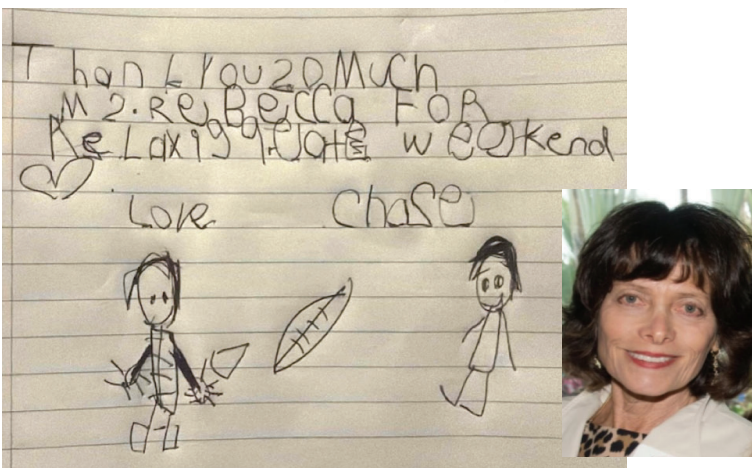 Thank You 2o Much
M2. Rebecca FOR
Relaxig qiuate weekend
Love Chase